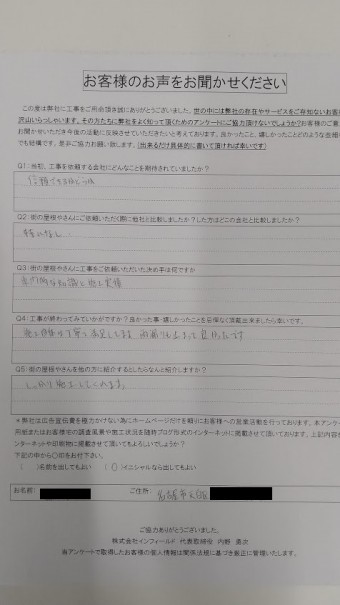 お客様のお声をお聞かせください
この度は弊社に工事をご用命頂き誠にありがとうございました。世の中には弊社の存在やサービスをご存知ないお客
沢山いらっしゃいます。その方たちに弊社をよく知って頂くためのアンケートにご協力頂けないでしょうか?お客様のご意
お聞かせいただき今後の活動に反映させていただきたいと考えております。良かったこと、嬉しかったことどのような些細
でも結構です。是非ご協力お願い致します。(出来るだけ具体的に書いて頂ければ幸いです)
Q1:当初、工事を依頼する会社にどんなことを期待されていましたか?
信頼できるかどうか
Q2:街の屋根やさんにご依頼いただく際に他社と比較しましたか?した方はどこの会社と比較しましたか?
特になし
Q3:街の屋根やさんに工事をご依頼いただいた決め手は何ですか
専門的な知識と施工実績
Q4:工事が終わってみていかがですか?良かった事・嬉しかったことを忌憚なく頂戴出来ましたら幸いです。
施工自体は丁寧で満足してます 雨漏りも止まって良かったです
Q5:街の屋根やさんを他の方に紹介するとしたらなんと紹介しますか?
しっかり施工してくれます。
*弊社は広告宣伝費を極力かけない為にホームページだけを頼りにお客様への営業活動を行っております。本アンケー
用紙またはお客様宅の調査風景や施工状況を随時ブログ形式のインターネットに掲載させて頂いております。上記内容を
ンターネットや印刷物に掲載させて頂いてもよろしいでしょうか?
下記の中から〇印をお付下さい。
( )名前を出してもよい (〇)イニシャルなら出してもよい
お名前: ご住所: 名古屋市天白区
ご協力ありがとうございました。
株式会社インフィールド 代表取締役 内野 勇次
当アンケートで取得したお客様の個人情報は関係法規に基づき厳正に管理いたします。